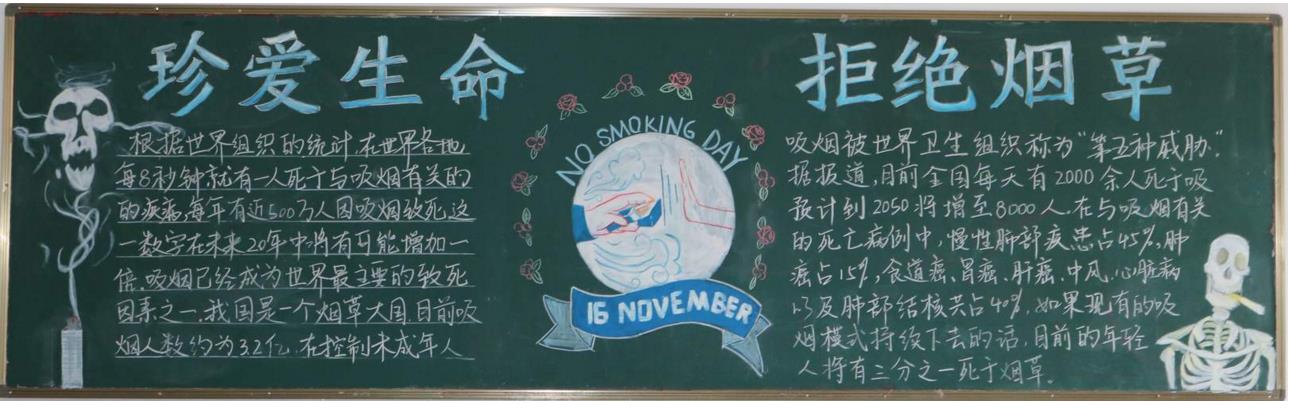 珍爱生命
根据世界组织的统计,在世界各地
每8秒钟就有一人死于与吸烟有关的
的疾病,每年有近500万人因吸烟致死,这
一数字在未来20年中将有可能增加一
倍,吸烟已经成为世界最主要的致死
因素之一,我国是一个烟草大国,目前吸
烟人数约为3.2亿,在控制未成年人
NO SMOKING DAY
16 NOVEMBER
拒绝烟草
吸烟被世界卫生组织称为“第五种威胁”.
据报道,目前全国每天有2000余人死于吸
预计到2050将增至8000人.在与吸烟有关
的死亡病例中,慢性肺部疾患占45%,肺
癌占15%,食道癌、胃癌、肝癌、中风、心脏病
以及肺部结核共占40%,如果现有的吸
烟模式持续下去的话,目前的年轻
人将有三分之一死于烟草.